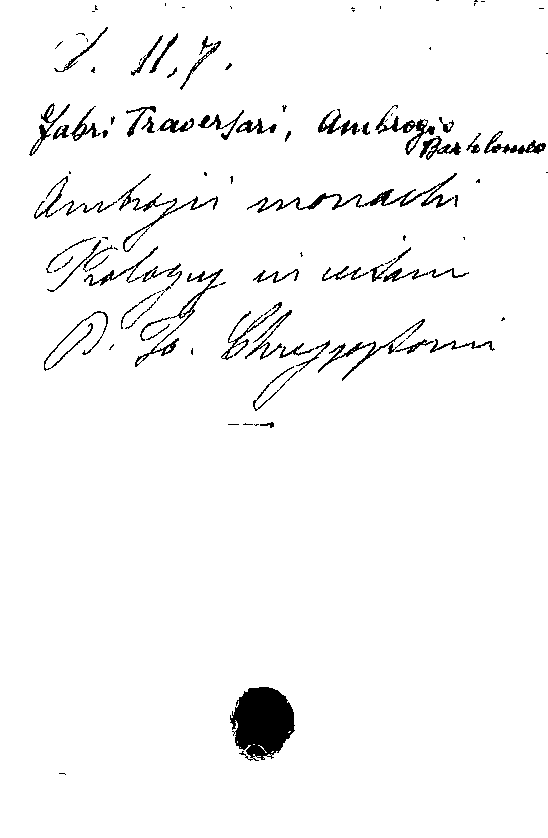 II, 7.
Fabri Traversari, Ambrogio
Bartolomeo
Ambrogii monachi
Prologus in vitam
D. Jo. Chrysostomi